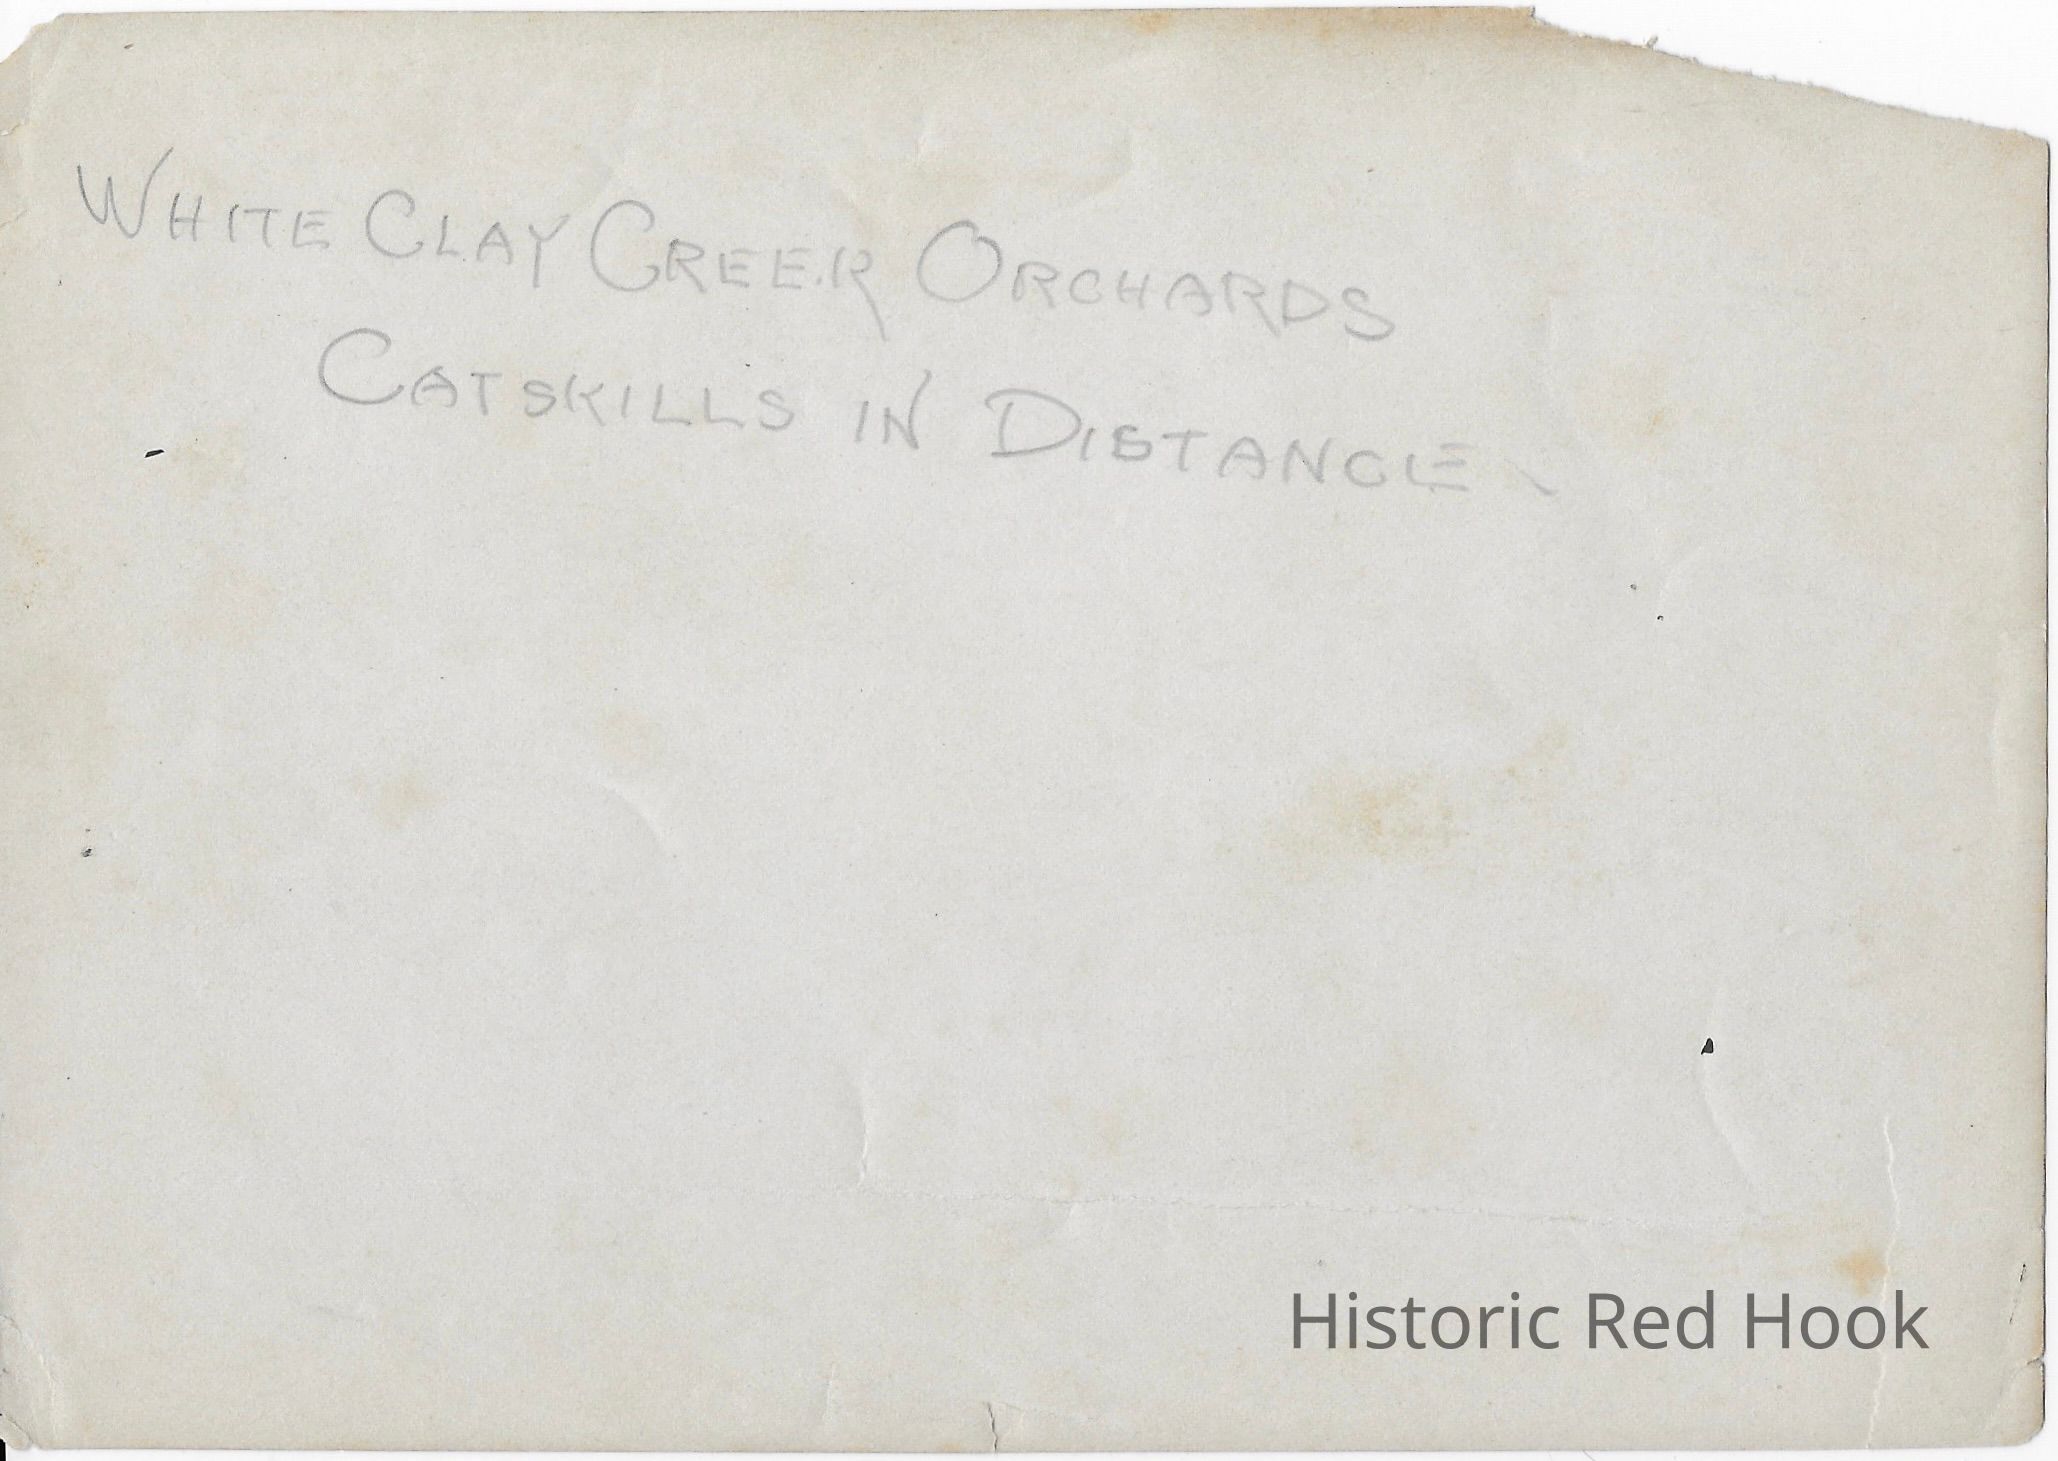 WHITE CLAY CREEK ORCHARDS
CATSKILLS IN DISTANCE
Historic Red Hook